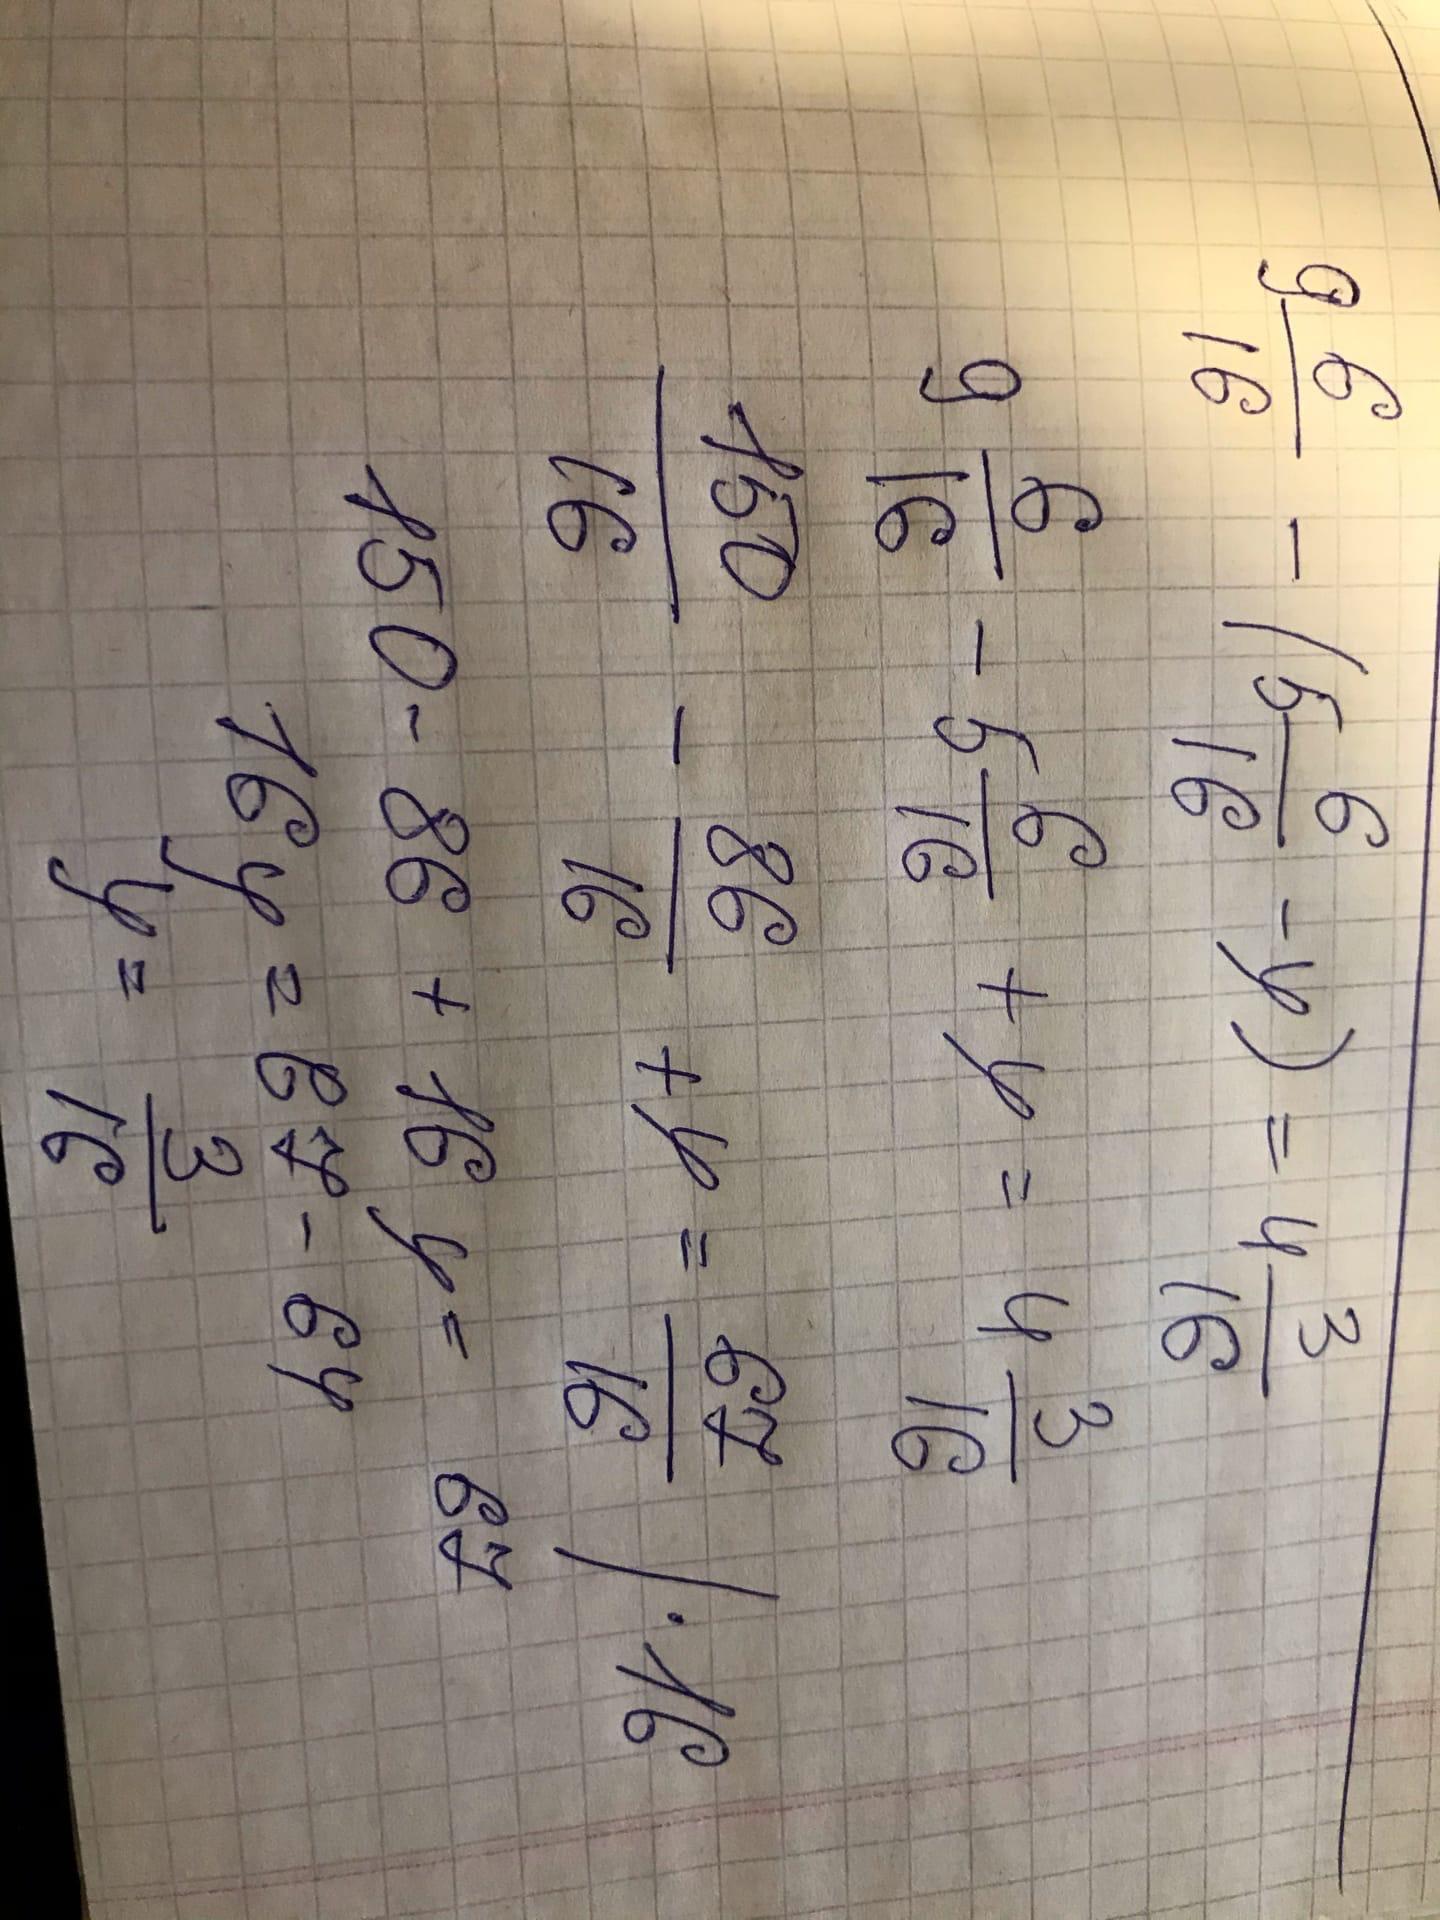 9 6/16 - (5 6/16 - y) = 4 3/16
9 6/16 - 5 6/16 + y = 4 3/16
150/16 - 86/16 + y = 67/16 / · 16
150 - 86 + 16y = 67
16y = 67 - 64
y = 3/16